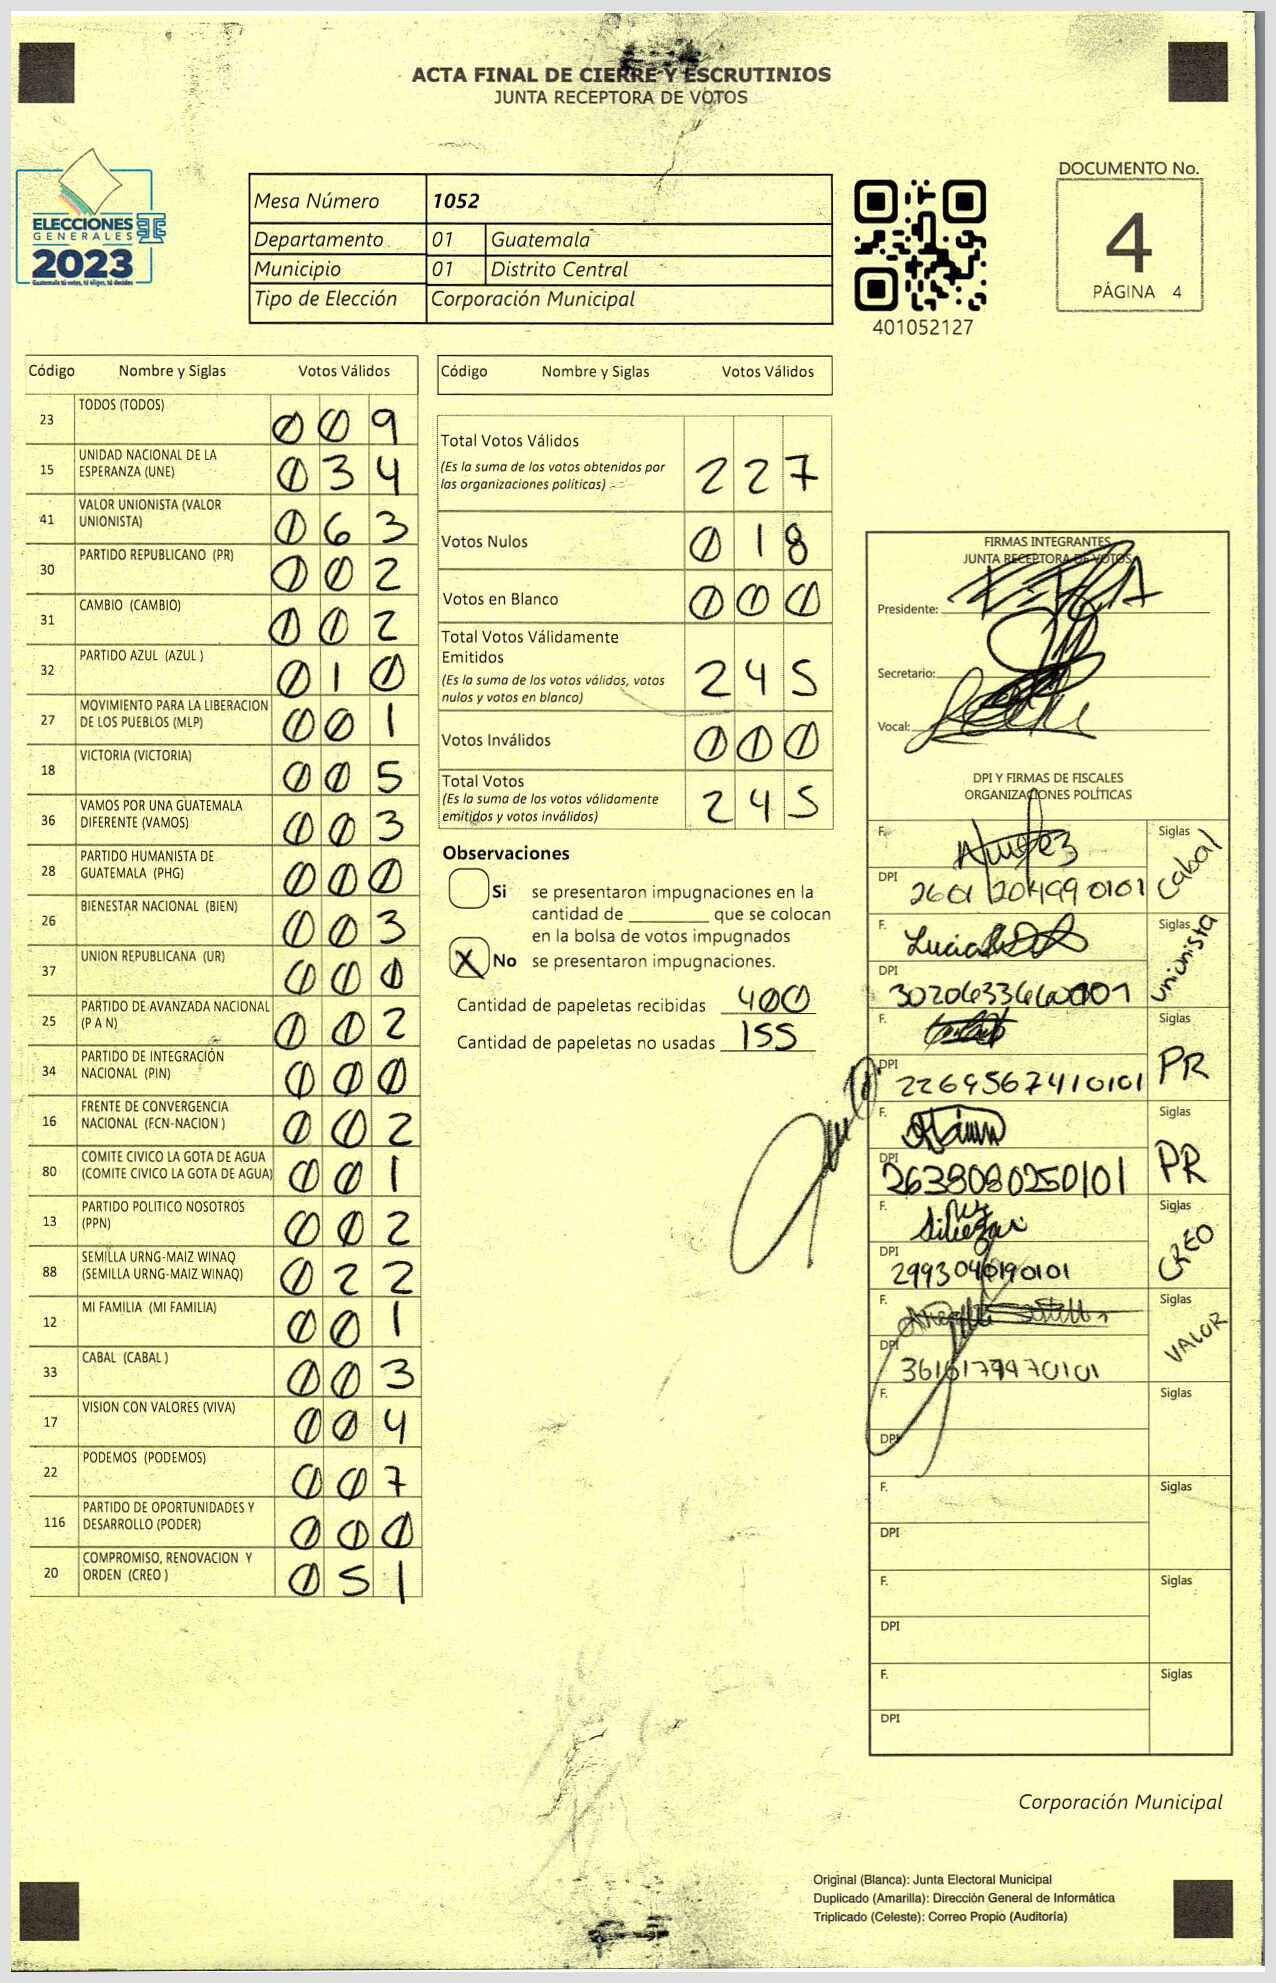 ACTA FINAL DE CIERRE Y ESCRUTINIOS
JUNTA RECEPTORA DE VOTOS
ELECCIONES
GENERALES
2023
Guatemala tú votas, tú eliges, tú decides
Mesa Número 1052
Departamento 01 Guatemala
Municipio 01 Distrito Central
Tipo de Elección Corporación Municipal
401052127
DOCUMENTO No.
4
PÁGINA 4
Código Nombre y Siglas Votos Válidos
23 TODOS (TODOS) 009
15 UNIDAD NACIONAL DE LA
ESPERANZA (UNE) 034
41 VALOR UNIONISTA (VALOR
UNIONISTA) 063
30 PARTIDO REPUBLICANO (PR) 002
31 CAMBIO (CAMBIO) 002
32 PARTIDO AZUL (AZUL ) 010
27 MOVIMIENTO PARA LA LIBERACION
DE LOS PUEBLOS (MLP) 001
18 VICTORIA (VICTORIA) 005
36 VAMOS POR UNA GUATEMALA
DIFERENTE (VAMOS) 003
28 PARTIDO HUMANISTA DE
GUATEMALA (PHG) 000
26 BIENESTAR NACIONAL (BIEN) 003
37 UNION REPUBLICANA (UR) 000
25 PARTIDO DE AVANZADA NACIONAL
(P A N) 002
34 PARTIDO DE INTEGRACIÓN
NACIONAL (PIN) 000
16 FRENTE DE CONVERGENCIA
NACIONAL (FCN-NACION ) 002
80 COMITE CIVICO LA GOTA DE AGUA
(COMITE CIVICO LA GOTA DE AGUA) 001
13 PARTIDO POLITICO NOSOTROS
(PPN) 002
88 SEMILLA URNG-MAIZ WINAQ
(SEMILLA URNG-MAIZ WINAQ) 022
12 MI FAMILIA (MI FAMILIA) 001
33 CABAL (CABAL ) 003
17 VISION CON VALORES (VIVA) 004
22 PODEMOS (PODEMOS) 007
116 PARTIDO DE OPORTUNIDADES Y
DESARROLLO (PODER) 000
20 COMPROMISO, RENOVACION Y
ORDEN (CREO ) 051
Código Nombre y Siglas Votos Válidos
Total Votos Válidos 227
(Es la suma de los votos obtenidos por
las organizaciones políticas)
Votos Nulos 018
Votos en Blanco 000
Total Votos Válidamente
Emitidos 245
(Es la suma de los votos válidos, votos
nulos y votos en blanco)
Votos Inválidos 000
Total Votos 245
(Es la suma de los votos válidamente
emitidos y votos inválidos)
Observaciones
Si se presentaron impugnaciones en la
cantidad de ________ que se colocan
en la bolsa de votos impugnados
X No se presentaron impugnaciones.
Cantidad de papeletas recibidas 400
Cantidad de papeletas no usadas 155
FIRMAS INTEGRANTES
JUNTA RECEPTORA DE VOTOS
Presidente:
Secretario:
Vocal:
DPI Y FIRMAS DE FISCALES
ORGANIZACIONES POLÍTICAS
F. Siglas Cabal
DPI 2601 20499 0101
F. Lucia Siglas unionista
DPI
F. Siglas PR
DPI 2269567410101
F. Siglas PR
DPI 2638080250101
F. Siglas CREO
DPI 2993040190101
F. Siglas VALOR
DPI
F. Siglas
DPI
F. Siglas
DPI
F. Siglas
DPI
F. Siglas
DPI
Corporación Municipal
Original (Blanca): Junta Electoral Municipal
Duplicado (Amarilla): Dirección General de Informática
Triplicado (Celeste): Correo Propio (Auditoría)